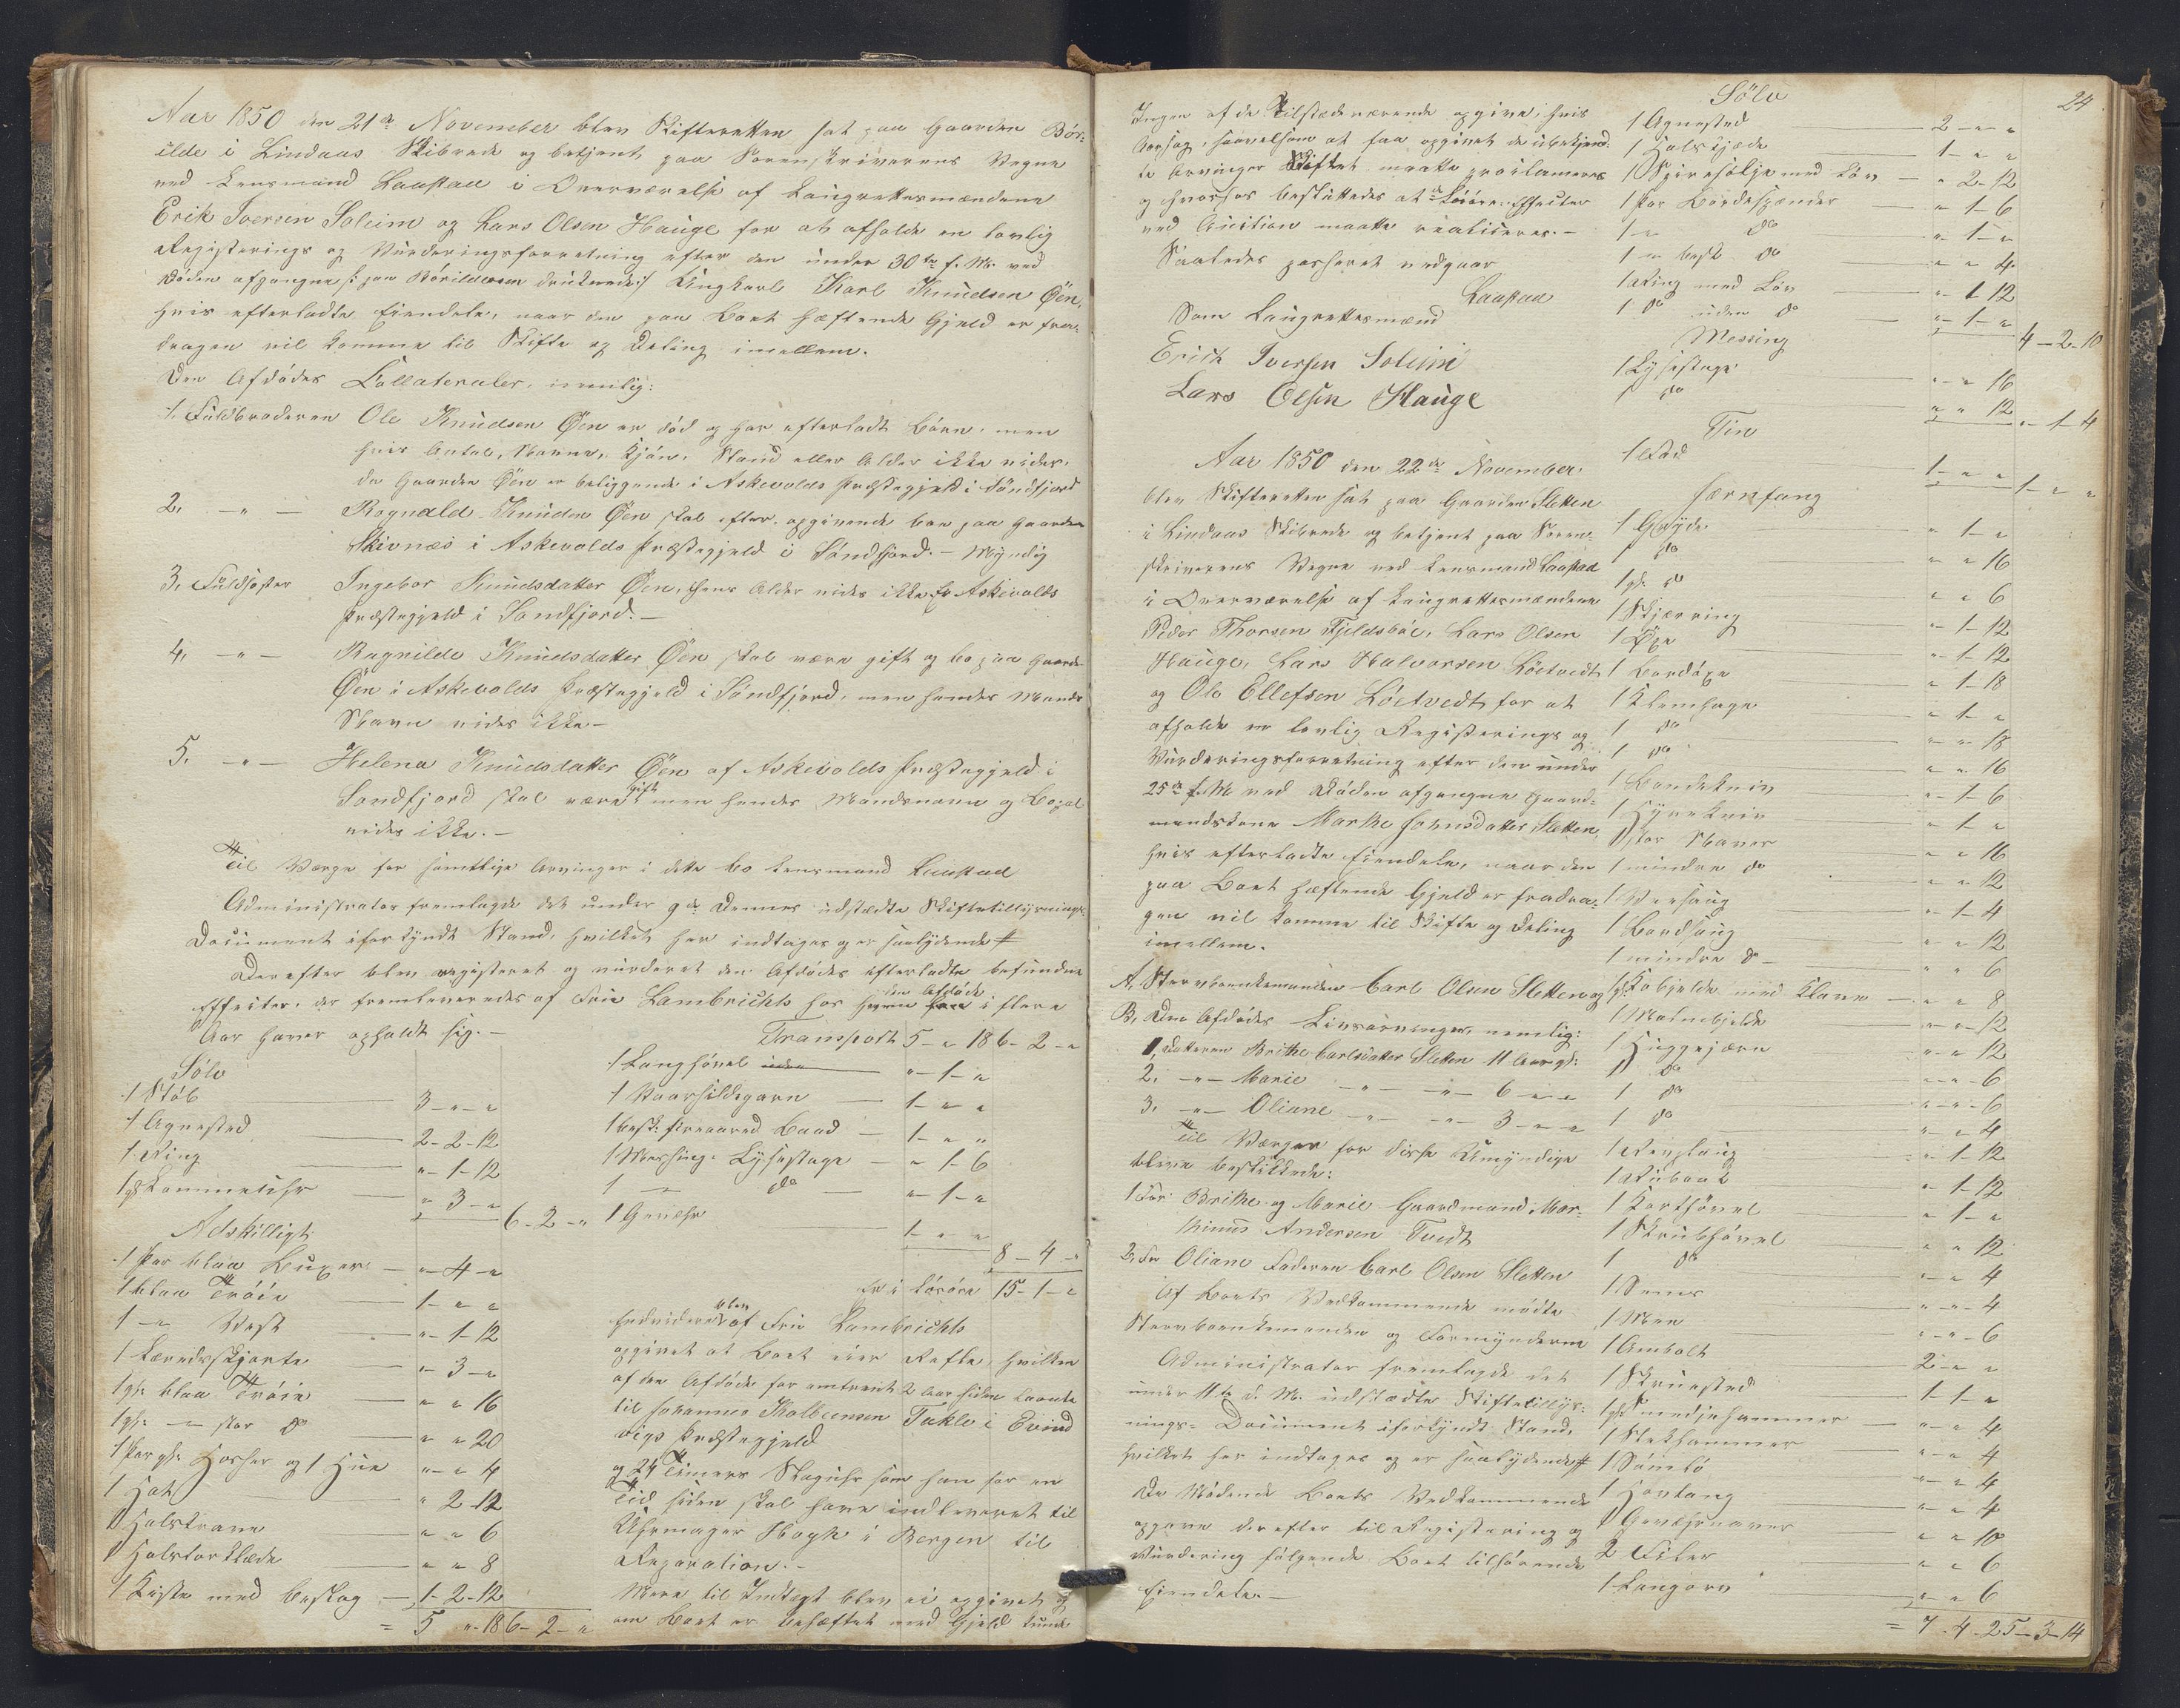 Aar 1850 den 21de November blev Skifteretten sat paa Gaarden Bör-
ilde i Lindaas Skibrede og betjent paa Sorenskriverens Vegne
ved Lensmand Laustad i Overværelse af Laugrettesmændene
Erik Iversen Soleim og Lars Olsen Hauge for at afholde en lovlig
Registerings og Vurderingsforretning efter den under 30te f. M. ved
Döden afgangne /: paa Börildosen druknede :/ Ungkarl Karl Knudsen Öen,
hvis efterladte Eiendele, naar den paa Boet hæftende Gjeld er fra-
dragen vil komme til Skifte og Deling imellem.
Den Afdödes Collateraler, nemlig:
1. Fuldbroderen Ole Knudsen Öen er död og har efterladt Börn, men
hvis Antal, Navne, Kjön, Stand eller Alder ikke vides,
da Gaarden Öen er beliggende i Askevolds Præstegjeld i Söndfjord
2. -"- Rognald Knudsen Öen skal efter opgivende boe paa Gaarden
Skivnæs i Askevolds Præstegjeld i Söndfjord. - Myndig
3. Fuldsöster Ingebor Knudsdatter Öen, hvis Alder vides ikke, fra Askevolds
Præstegjeld i Sondfjord. -
4. -"- Ragnilde Knudsdatter Öen skal være gift og bo paa Gaarden
Öen i Askevolds Præstegjeld i Söndfjord, men hendes Mands
Navn vides ikke -
5. -"- Helena Knudsdatter Öen af Askevolds Præstegjeld i
Sondfjord skal være gift men hendes Mandsnavn og Bopæl
vides ikke. -
Til Værge for samtlige Arvinger i dette Bo Lensmand Laustad
Administrator fremlagde det under 9de Dennes udstædte Skiftetillysnings-
Document i forkyndt Stand, hvilket her indtages og er saalydende #
Derefter blev registeret og vurderet den Afdödes efterladte befundne
Effecter, der fremleveredes af Frue Lambrichts hos hvem den Afdöde i flere
Aar haver opholdt sig. -
Sölv
1 Stöb 3 - " - "
1 Agnested 2 - 2 - 12
1 Ring " - 1 - 12
1 gl Lommeuhr " 3 - "
6 - 2 - "
Adskilligt
1 Par blaa Buxer " - 4 - "
1 blaa Tröie 1 - " - "
1 -"- Vest " - 1 - 12
1 Lærredsskjorte " - 3 - "
1 gl. blaa Tröie " " 16
1 gl. -"- stor do " " 20
1 Par gl. Hoser og 1 Hue " - " 4
1 Hat " 2 - 12
1 Halskrave " " 6
1 Halstörklæde " " 8
1 Kiste med Beslag 1 - 2 - 12
= 5 " - 18 6 - 2 - "
Transport 5 - " 18 6 - 2 - "
1 Langhövel " - 1 - "
1 Vaarsildgarn 1 - " "
1 besk: fireaared Baad 1 - " "
1 Messing Lysestage " 1 - 6
1 -"- do " - 1 - "
1 Gevæhr 1 - " "
8 - 4 - "
Er i Lösöre 15 - 1 - "
Endvidere blev af Frue Lambrichts
opgivet at Boet eier Rifle, hvilken
af den Afdöde for omtrent 2 Aar siden laante
til Johannes Kolbeensen Takle i Evind
vigs Præstegjeld
og 24 Timers Staguhr som han for en
Tid siden skal have indleveret til
Uhrmager Hagh i Bergen til
Reparation. -
Mere til Indtægt blev ei opgivet og
om Boet er behæftet med Gjeld kunde
24
Ingen af de Tilstædeværende opgive, hvis
Aarsag, saavelsom at faa opgivet de ubekjend-
te Arvinger Skiftet maatte proclameres
og hvorhos besluttedes at Löösöre Effecter
ved Auction maatte realiseres. -
Saaledes passeret vedgaar
Laustad
Som Laugrettesmænd
Erich Iversen Soleim
Lars Olsen Hauge
Aar 1850 den 22de November
blev Skifteretten sat paa Gaarden Sletten
i Lindaas Skibrede og betjent paa Soren-
skriverens Vegne ved Lensmand Laustad
i Overværelse af Laugrettesmændene
Peder Thorsen Fjeldsböe, Lars Olsen
Hauge, Lars Halvorsen Löetvedt
og Ole Ellefsen Löetvedt for at
afholde en lovlig Registerings og
Vurderingsforretning efter den under
25de f. M. ved Döden afgangne Gaard-
mandskone Marthe Johnsdatter Sletten,
hvis efterladte Eiendele, naar den
paa Boet hæftende Gjeld er fradra-
gen vil komme til Skifte og Deling
imellem.
A, Stervboenkemanden Carl Olsen Sletten og
B, Den Afdödes Livsarvinger, nemlig:
1, Datteren Brithe Carlsdatter Sletten 11 Aar gl:
2. -"- Marie -"- -"- 6 - " - "
3. -"- Oliane -"- -"- 3 - " - "
Til Værger for disse Umyndige
bleve beskikkede:
1 For Brithe og Marie Gaardmand Mar-
thinus Andersen Tvedt
2, For Oliane Faderen Carl Olsen Sletten
Af Boets Vedkommende mödte
Stervboenkemanden og Formynderne
Administrator fremlagde det
under 11te d. M. udstædte Skiftetillys-
nings-Document i forkyndt Stand,
hvilket her indtages og er saalydende #
De Mödende Boets Vedkommende
opgave derefter til Registering og
Vurdering fölgende Boet tilhörende
Eiendele. -
Sölv
1 Agnested 2 - " "
1 Halskjæde 1 - " "
1 Spiresölje med Löv " 2 - 12
1 Par Bordespænder " 1 - 6
1 -"- do " 1 - "
1 -"- besk do " " 4
1 Ring med Löv " 1 12
1 do uden do " - 1 - "
4 - 2 - 10
Messing
1 Lysestage " " 16
1 do " " 12
" - 1 - 4
Tin
1 Fad 1 - " "
1 - " "
Jærnfang
1 Gryde " 1 - "
1 do " " 16
1 gl. do " " 6
1 Skjærring " - 1 - 12
1 Öxe " - 1 - 12
1 Bordöxe " 1 - 18
1 Klemhage " 1 - "
1 do " " 18
1 do " " 16
1 Baandekniv " - 1 - 6
1 Hyvekniv " 1 - "
1 stor Naver " " 16
1 mindre do " " 12
1 Veesaug " - 1 - 4
1 Bordsaug " " 12
1 mindre do " " 6
1 gl: Kobjelde med Klave " " 8
1 Malmbjelde " " 12
1 Huggejærn " " 12
1 do " - " - 6
1 do " - " - 6
1 do " - " 4
" - 1 - 12
" - 1 - 12
1 Korthövel " - 1 - "
1 Skrubhövel " " 12
1 do " - " 4
" - " - 4
" - " - 6
1 Ambolt 2 - " "
1 Skruested 1 - 1 - "
1 gl: Smedjehammer " - " 4
1 Slethammer " - " 4
" - " 4
1 Hovtang " - " 4
1 Gevæhrnaver " " 10
2 Filer " " 6
1 Langorv " " 6
= 7 - 4 - 2 5 - 3 - 14